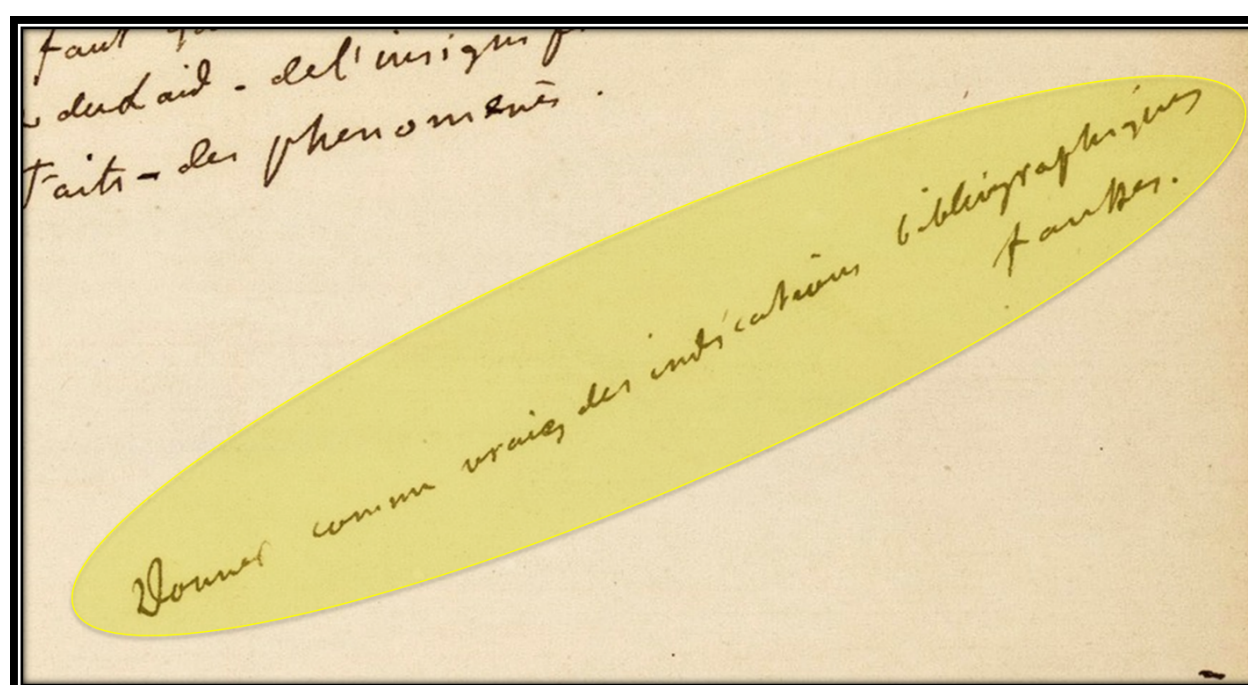 faut
du Laid - de l'insigni
Faits - des phenomenes.
Donner comme vraies des indications bibliographiques
fausses.